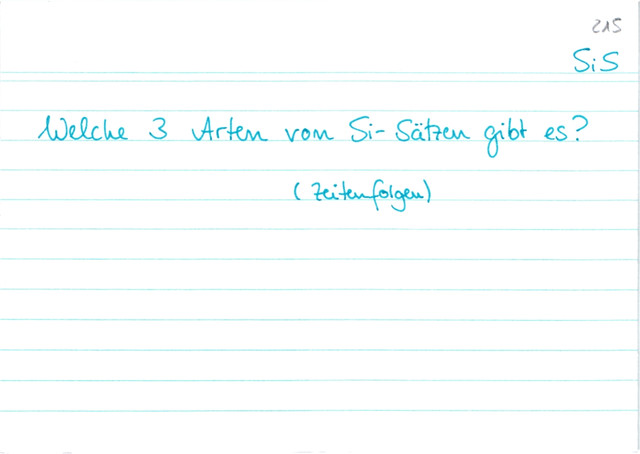 215
SiS
Welche 3 Arten von Si-Sätzen gibt es?
(Zeitenfolgen)